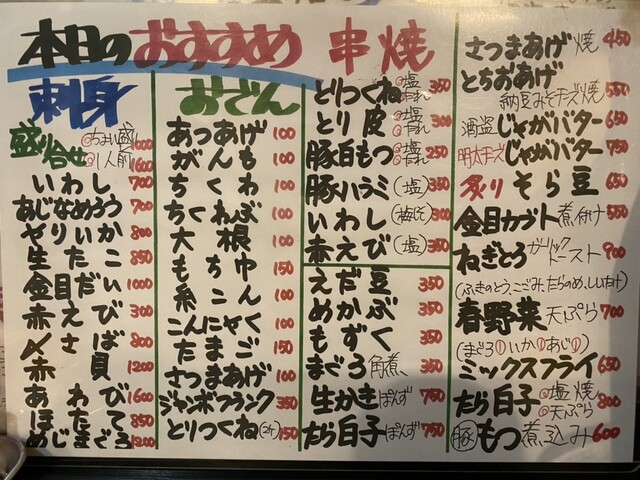 本日のおすすめ
刺身
盛り合せ
@ちょい盛 1000
@1人前 1600
いわし 700
あじなめろう 700
やりいか 800
生たこ 850
金目だい 1000
赤えび 300
〆さば 800
赤貝 1200
あわび 1600
ほたて 850
めじまぐろ 1200
おでん
あつあげ 100
がんも 100
ちくわ 100
ちくわぶ 100
大根 100
もち巾 150
糸こん 100
こんにゃく 100
たまご 150
さつまあげ 100
ジャンボフランク 350
とりつくね(2ケ) 150
串焼
とりつくね @塩 @たれ 350
とり皮 @塩 @たれ 300
豚白もつ @塩 @たれ 250
豚ハラミ(塩) 350
いわし(梅しそ) 300
赤えび(塩) 350
えだ豆 350
めかぶ 350
もずく 350
まぐろ角煮 350
生かきぽんず 750
たら白子ぽんず 750
さつまあげ焼 450
とちおあげ
納豆みそチーズ焼 550
酒盗じゃがバター 650
明太チーズじゃがバター 750
炙りそら豆 650
金目カブト煮付け 550
ねぎとろガーリックトースト 900
(ふきのとう、こごみ、たらのめ、しいたけ)
春野菜天ぷら 700
(まぐろ①いか①あじ①)
ミックスフライ 650
たら白子 @塩焼 @天ぷら 800
(豚)もつ煮込み 600